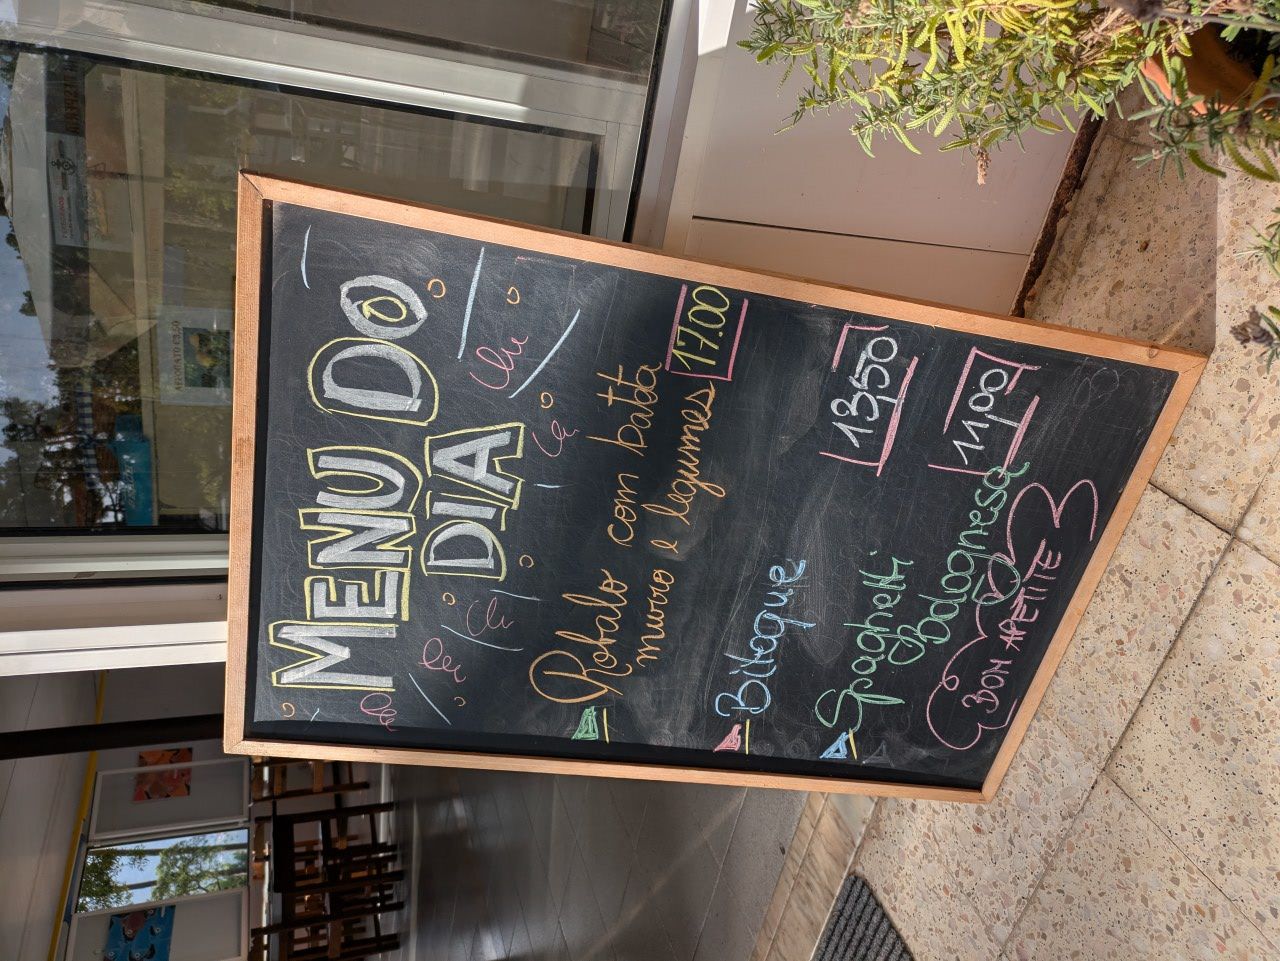 MENU DO
DIA
Robalo com batata
murro e legumes 17.00
Bitoque 13,50
Spaghetti
Bolognesa 11,00
BON APETITE